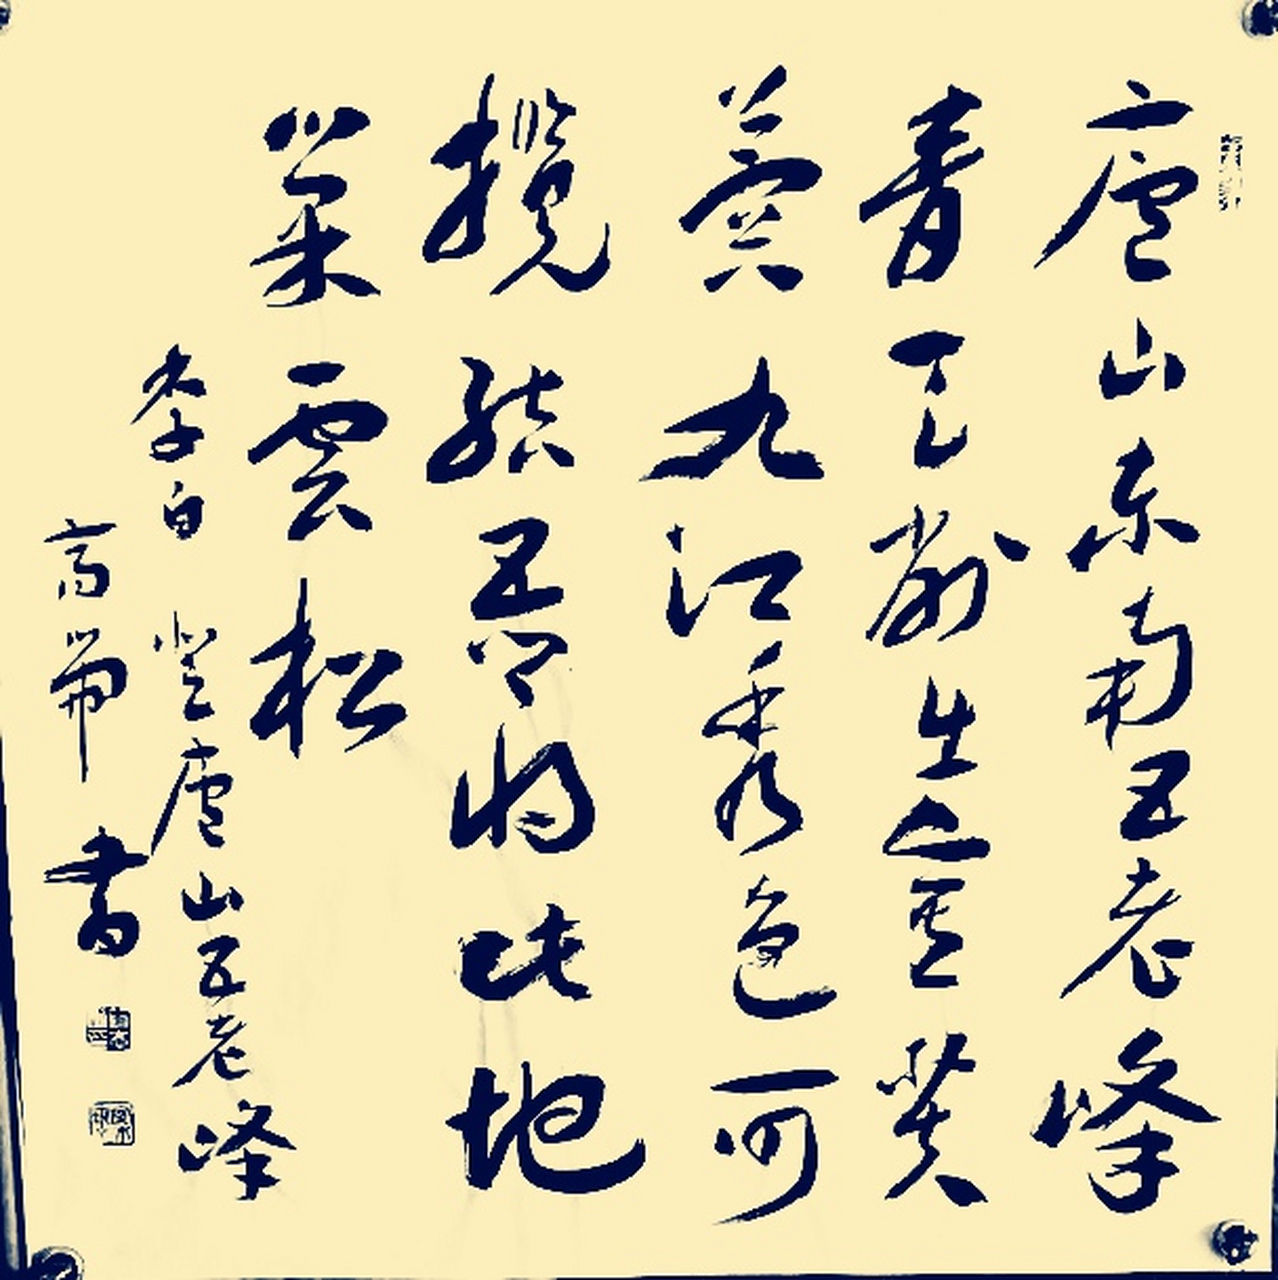 廬山东南五老峰
青天削出金芙
蓉九江秀色可
揽結吾将此地
巢雲松
李白登廬山五老峰
高 書